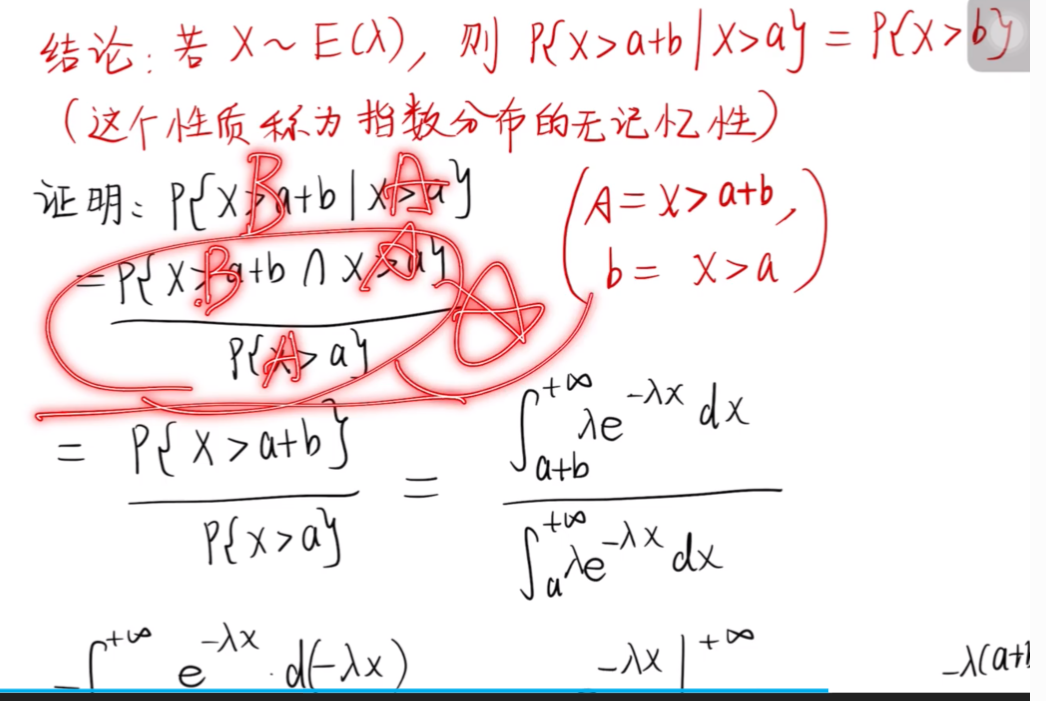 结论：若 X~E(λ)，则 P{X>a+b|X>a} = P{X>b}
（这个性质称为指数分布的无记忆性）
证明：P{X>a+b|X>a} B A (A = X>a+b,
= P{X>a+b ∩ X>a} B A b = X>a)
P{X>a} A
= P{X>a+b} = ∫_{a+b}^{+∞} λe^{-λx} dx
P{X>a} ∫_a^{+∞} λe^{-λx} dx
∫^{+∞} e^{-λx}·d(-λx) -λx|^{+∞} -λ(a+